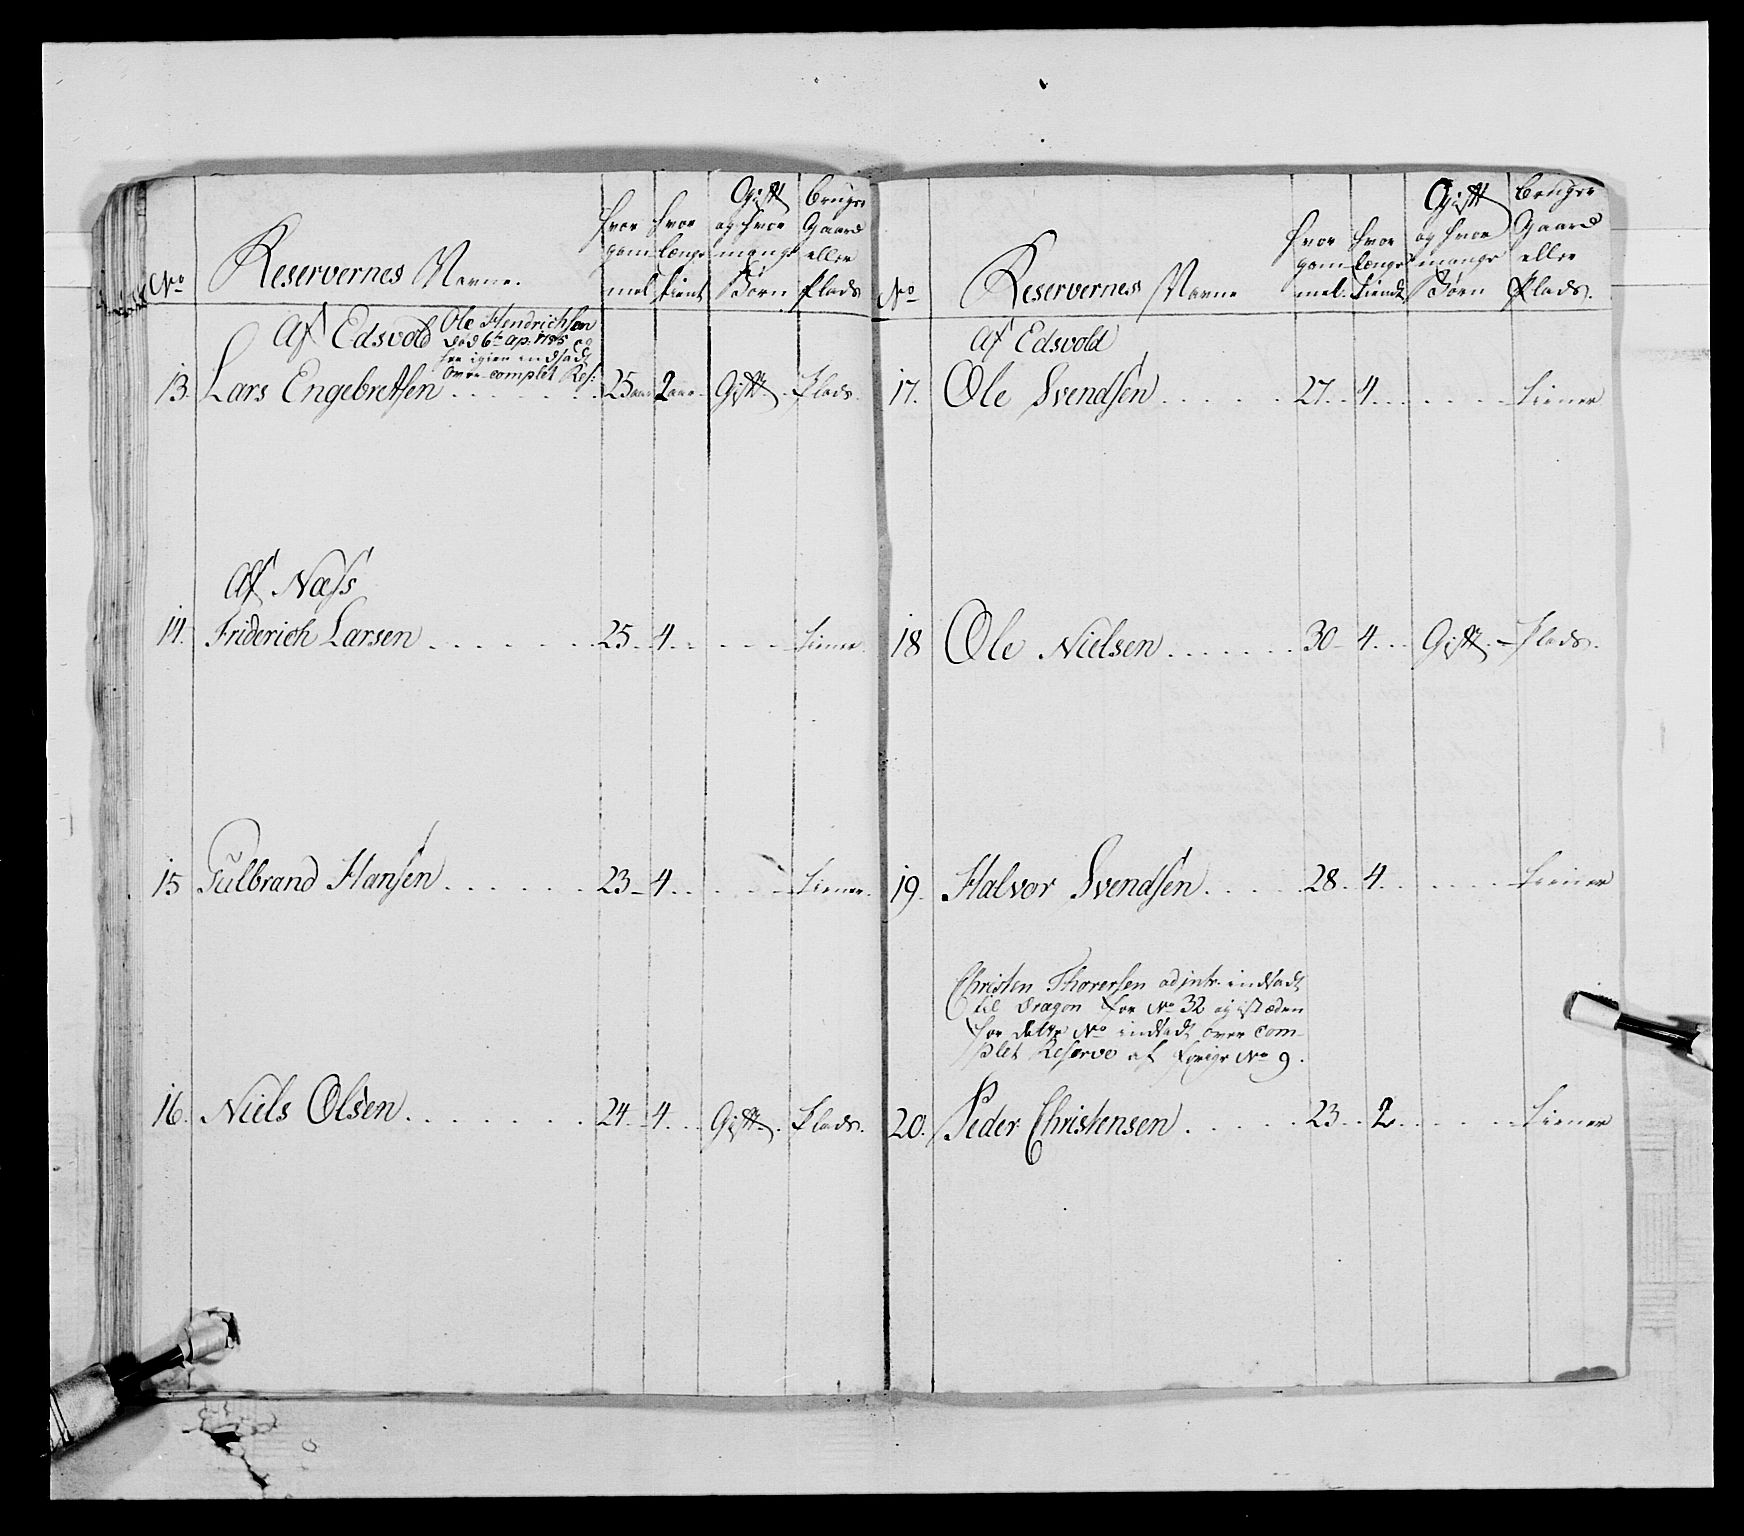 No
Reservernes Navne.
hvor gammel
hvor længe tient
Gift og hvor mange Børn
bruger Gaard eller Plads
Af Edsvold
Ole Hendrichsen
død 6te Ap. 1785 og
her igien indsadt
over complet Res:
13. Lars Engebretsen . . . . . 25 aar 2 aar Gift. Plads.
Af Næss
14. Friderich Larsen . . . . . . 25 4 . . . . tiener
15 Gulbrand Hansen . . . . . . 23 4 . . . . tiener.
16. Niels Olsen . . . . . . . 24 4 . . Gift. Plads.
No
Reservernes Navne
hvor gammel.
hvor længe tiendt
Gift og hvor mange Børn
bruger Gaard eller Plads.
Af Edsvold
17. Ole Svendsen . . . . . 27 . 4 . . . . . tiener
18 Ole Nielsen . . . . . . 30 4 . . Gift. Plads.
19. Halvor Svendsen . . . . 28 . 4 . . . . . tiener
Christen Thorersen ad intr. indsadt
til Dragon for No 32 og istæden
for dette No indsadt over com-
plet Reserve af forige No 9.
20. Peder Christensen . . . . . 23 . . 2 . . . . . tiener